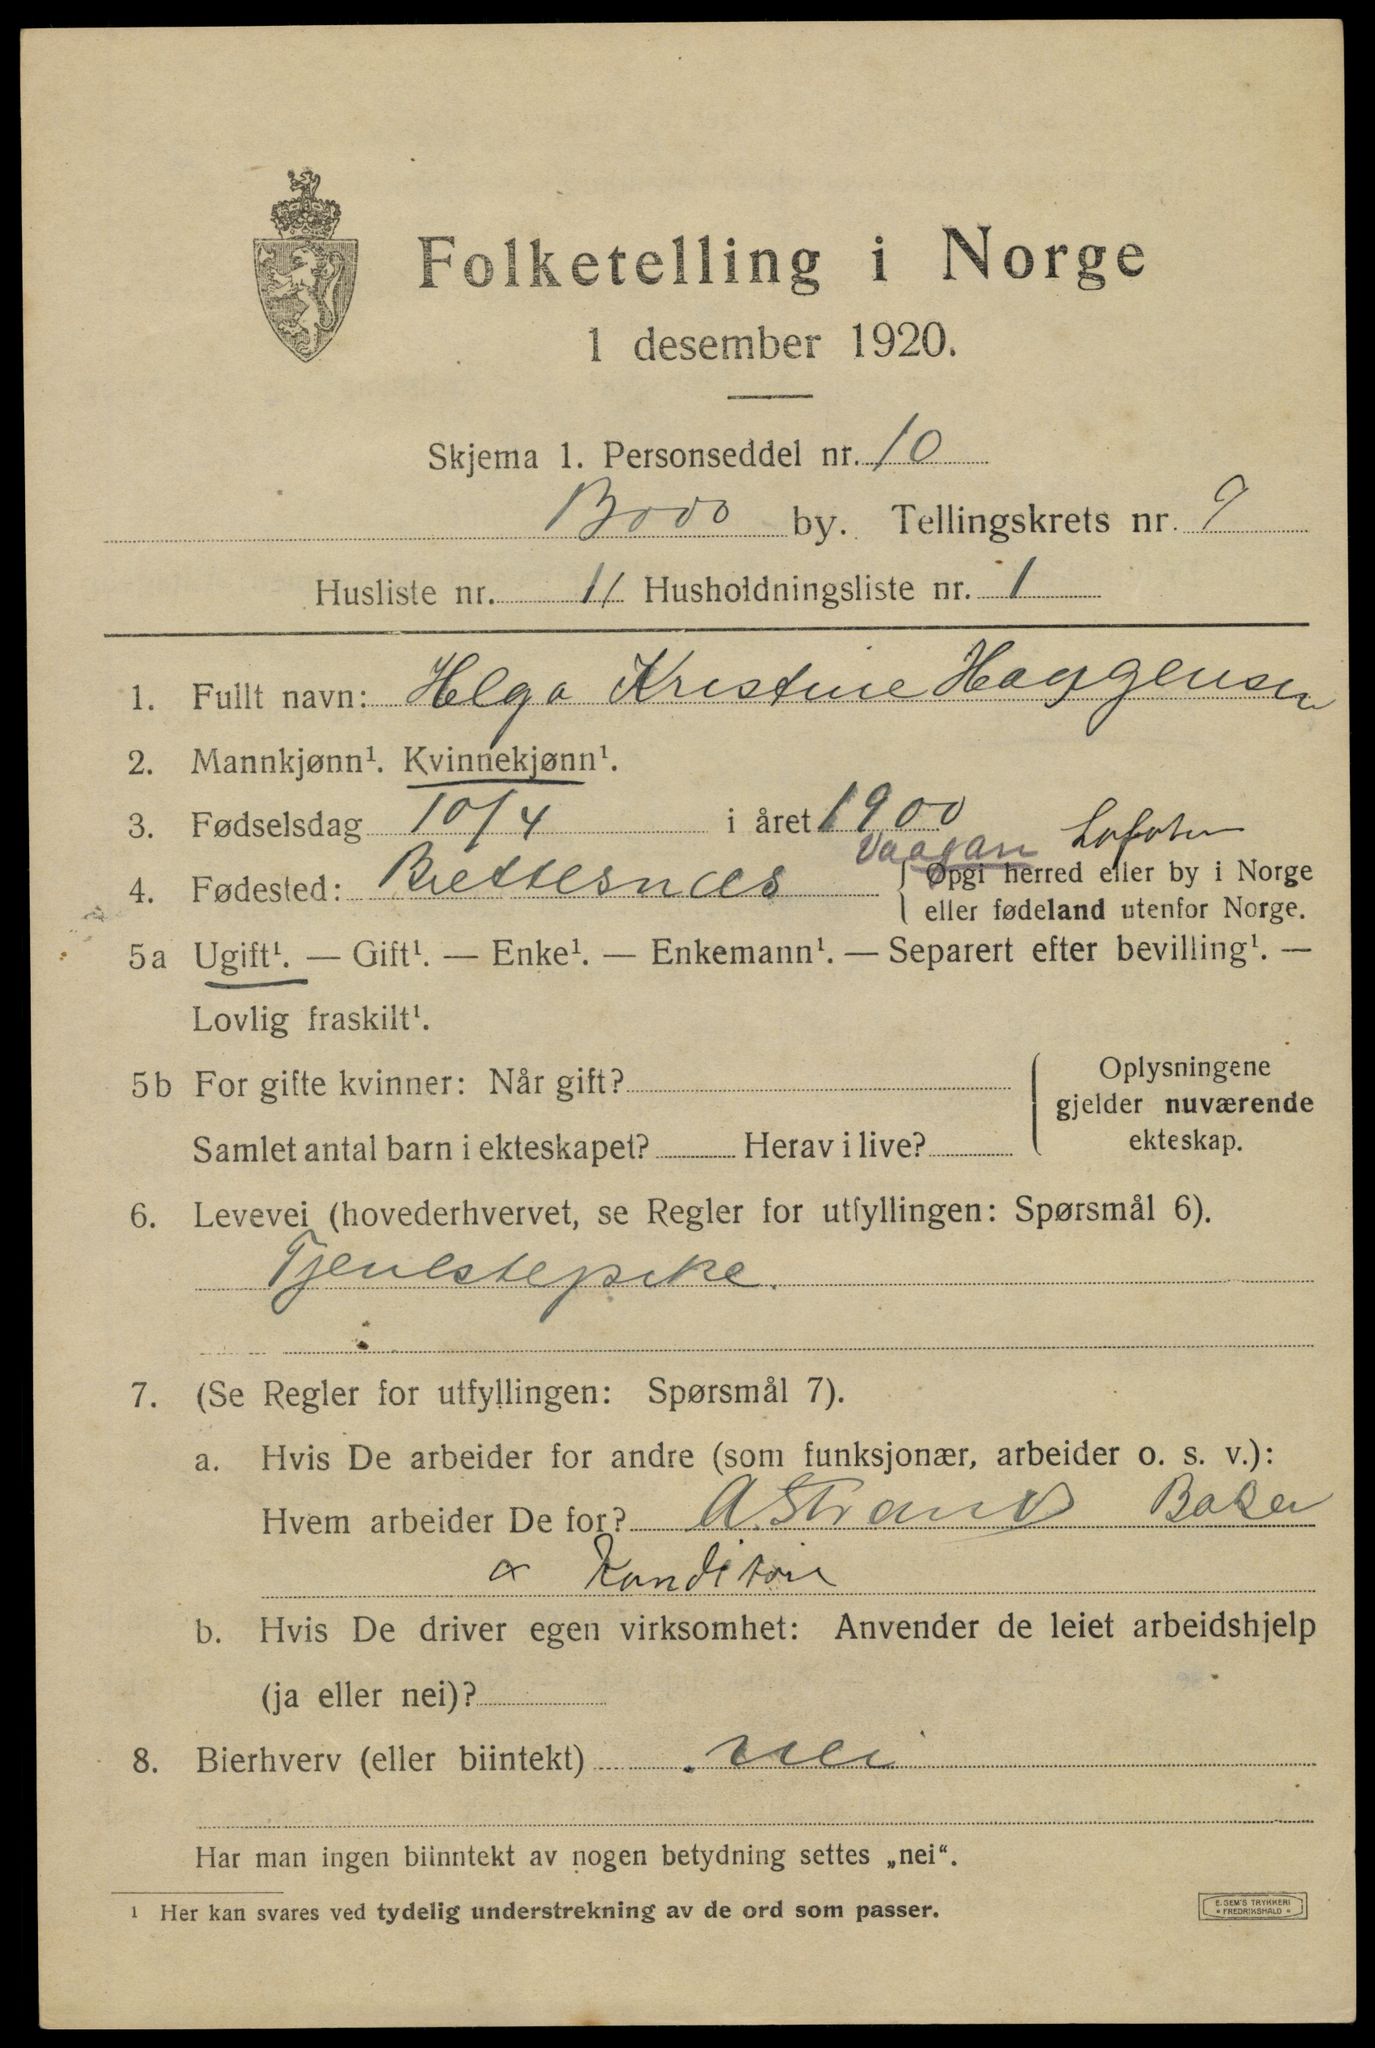 Folketelling i Norge
1 desember 1920.
Skjema 1. Personseddel nr. 10
Bodø by. Tellingskrets nr. 9
Husliste nr. 11 Husholdningsliste nr. 1
1. Fullt navn: Helga Kristine Haggensen
2. Mannkjønn¹. Kvinnekjønn¹.
3. Fødselsdag 10/4 i året 1900
Vaagan Lofoten
4. Fødested: Brettesnæs { Opgi herred eller by i Norge
eller fødeland utenfor Norge.
5a Ugift¹. — Gift¹. — Enke¹. — Enkemann¹. — Separert efter bevilling¹. —
Lovlig fraskilt¹.
5b For gifte kvinner: Når gift?
Samlet antal barn i ekteskapet? Herav i live?
Oplysningene
gjelder nuværende
ekteskap.
6. Levevei (hovederhvervet, se Regler for utfyllingen: Spørsmål 6).
Tjenestepike.
7. (Se Regler for utfyllingen: Spørsmål 7).
a. Hvis De arbeider for andre (som funksjonær, arbeider o. s. v.):
Hvem arbeider De for? A. Strand Baker
& Konditori
b. Hvis De driver egen virksomhet: Anvender de leiet arbeidshjelp
(ja eller nei)?
8. Bierhverv (eller biintekt) nei
Har man ingen biinntekt av nogen betydning settes „nei“.
¹ Her kan svares ved tydelig understrekning av de ord som passer.
E. SEM'S TRYKKERI
• FREDRIKSHALD •